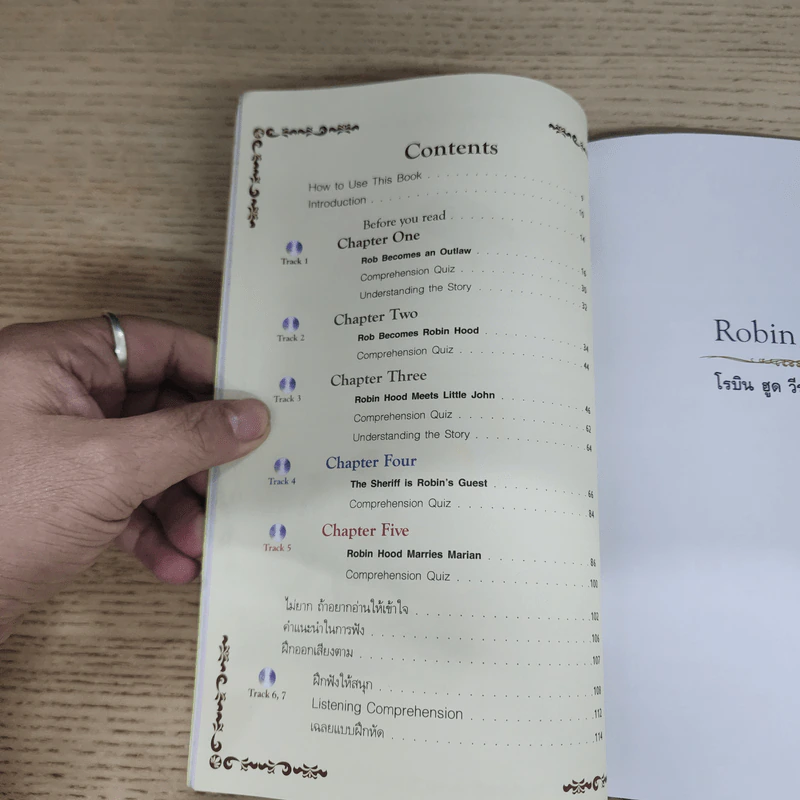 Contents
How to Use This Book . . . . . . . . . . . . . 9
Introduction . . . . . . . . . . . . . . . . 10
Before you read . . . . . . . . . . 14
Track 1
Chapter One
Rob Becomes an Outlaw . . . . . . . . . 16
Comprehension Quiz . . . . . . . . . . 30
Understanding the Story . . . . . . . . . 32
Track 2
Chapter Two
Rob Becomes Robin Hood . . . . . . . . . 34
Comprehension Quiz . . . . . . . . . . 44
Track 3
Chapter Three
Robin Hood Meets Little John . . . . . . . . 46
Comprehension Quiz . . . . . . . . . . 62
Understanding the Story . . . . . . . . . 64
Track 4
Chapter Four
The Sheriff is Robin's Guest . . . . . . . . 66
Comprehension Quiz . . . . . . . . . . 84
Track 5
Chapter Five
Robin Hood Marries Marian . . . . . . . . 86
Comprehension Quiz . . . . . . . . . . 100
ไม่ยาก ถ้าอยากอ่านให้เข้าใจ . . . . . . . . . . . . . 102
คำแนะนำในการฟัง . . . . . . . . . . . . . . . 106
ฝึกออกเสียงตาม . . . . . . . . . . . . . . . 107
Track 6, 7
ฝึกฟังให้สนุก . . . . . . . . . . . . . . 108
Listening Comprehension . . . . . . . . . 112
เฉลยแบบฝึกหัด . . . . . . . . . . . . . 114
Robin
โรบิน ฮูด